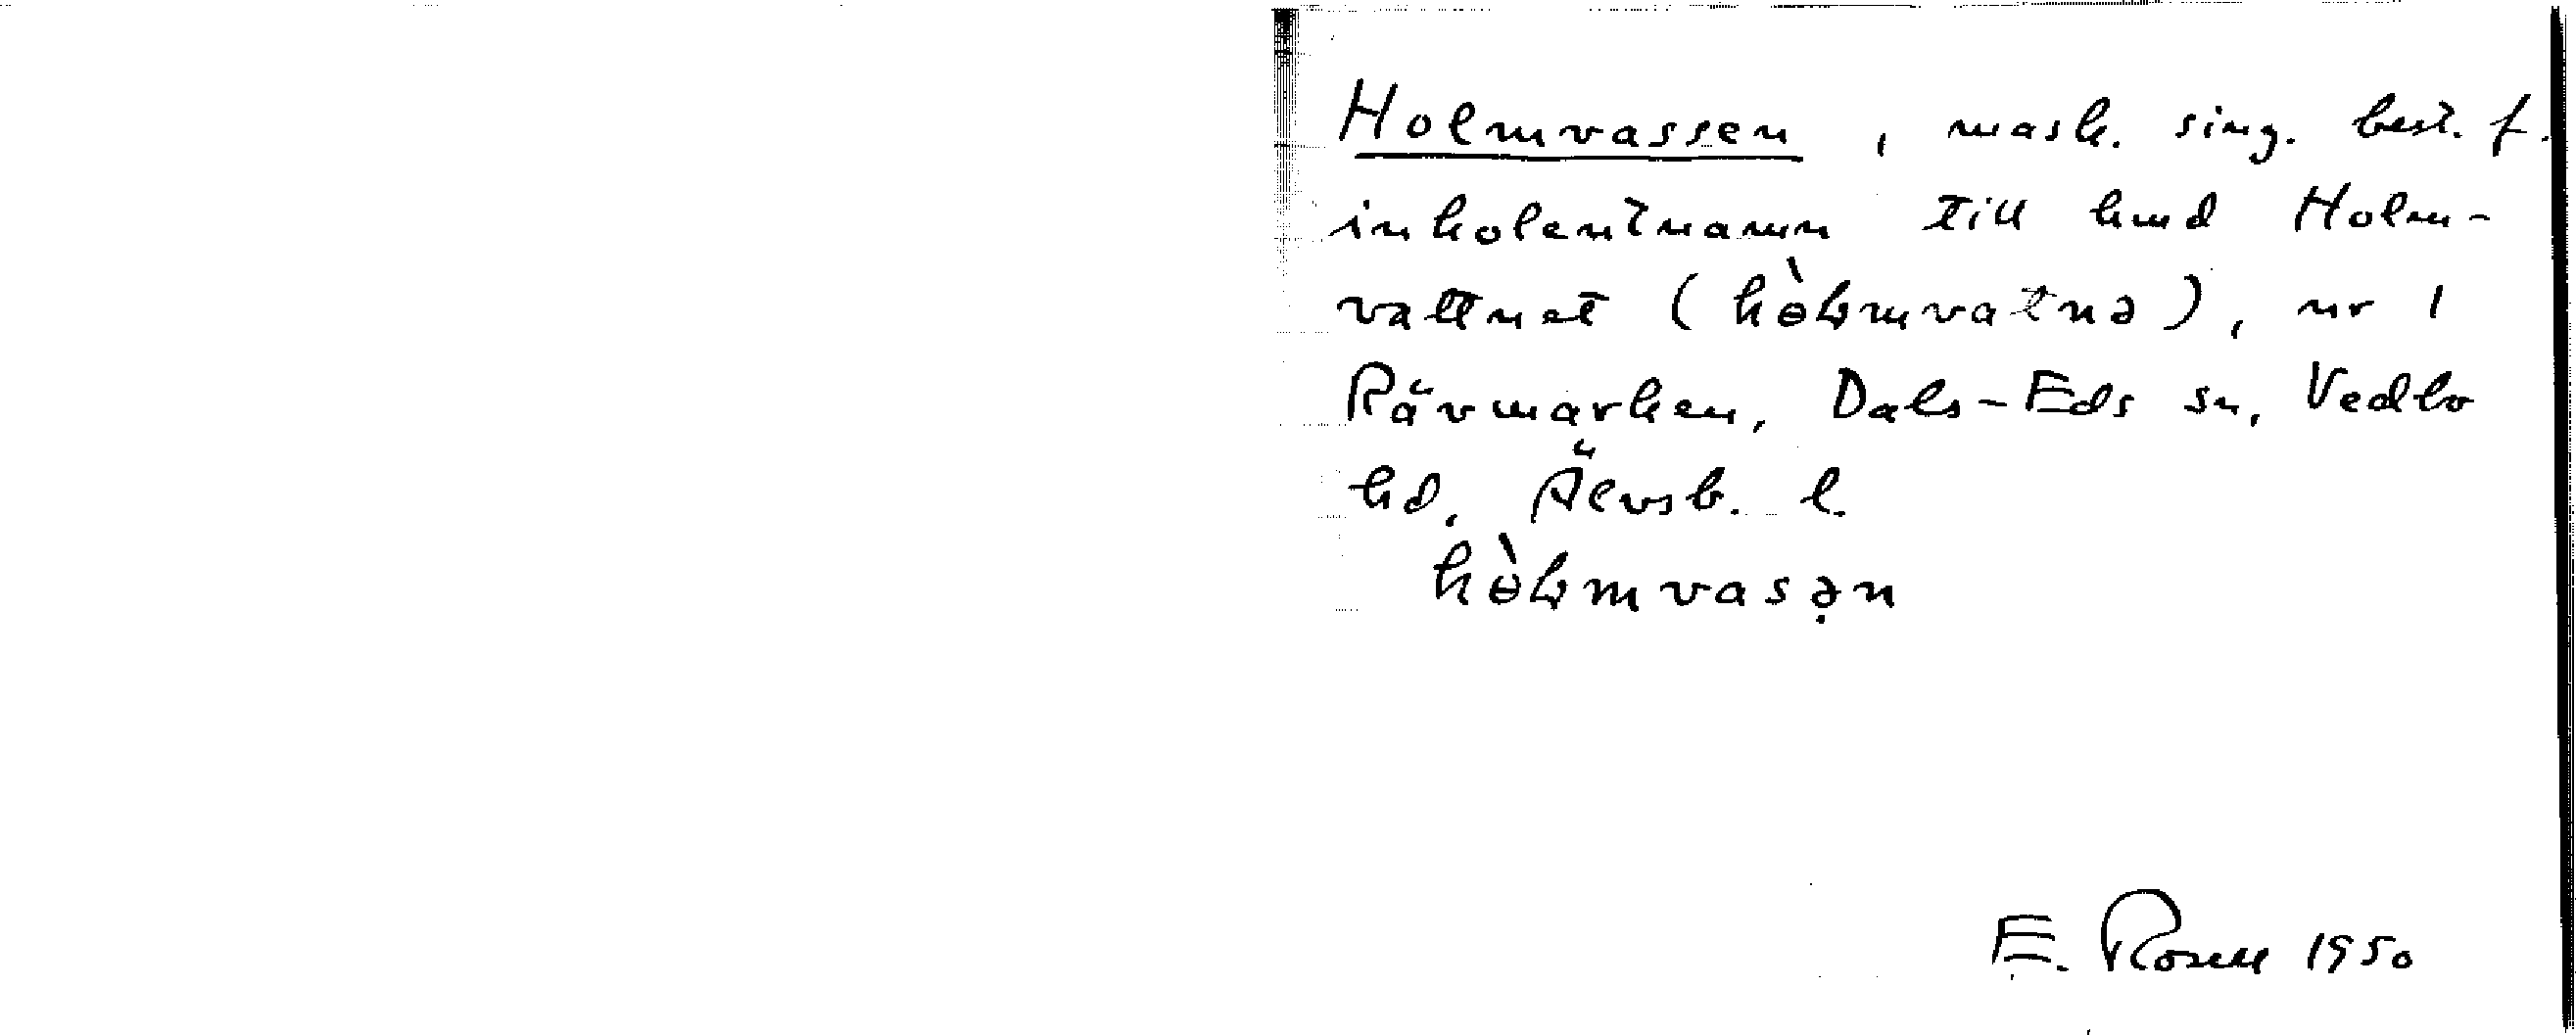 Holmvassen, mask. sing. best. f.
inkolentnamn till hmd Holm-
vattnet (hòɵɫmvatnə), nr 1
Rävmarken, Dals-Eds sn, Vedbo
hd, Älvsb. l.
hɵ̀ɫmvasə̣n
E. Rosell 1950